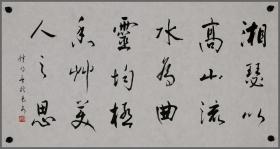 湘瑟以
高山流
水為曲
靈均極
香艸美
人之思